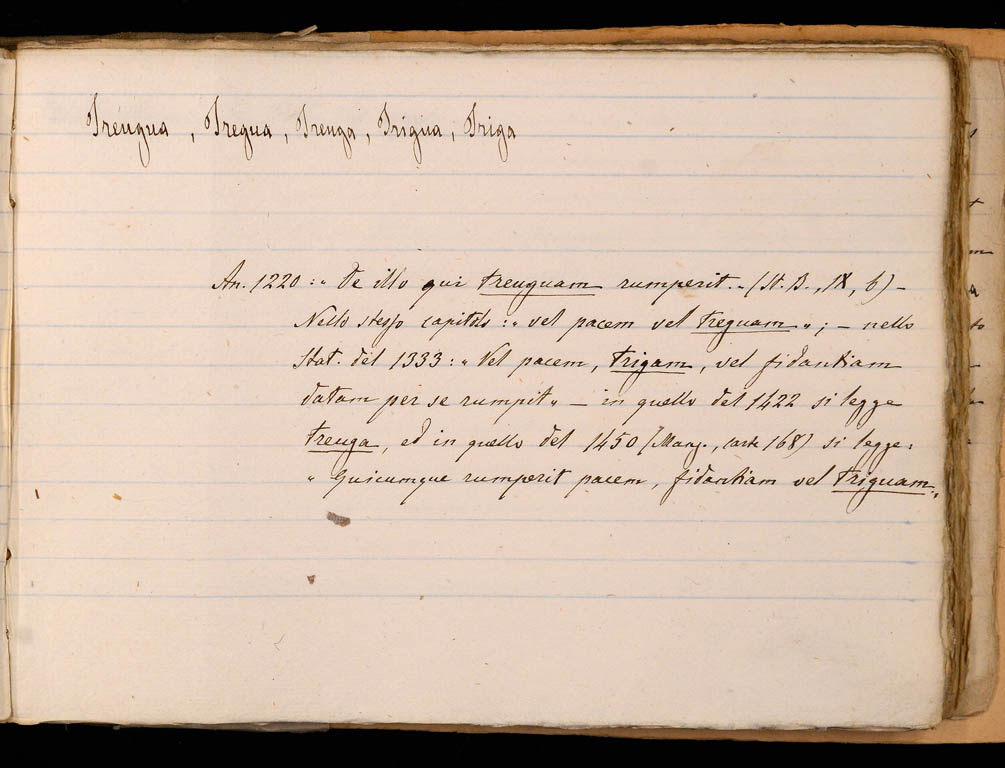 Treugua, Tregua, Treuga, Trigua, Triga
An. 1220: „ De illo qui treuguam rumperit. „ (St. B., IX, 6) –
Nello stesso capitolo: „ vel pacem vel treguam „; – nello
Stat. del 1333: „ Vel pacem, trigam, vel fidantiam
datam per se rumpit „ – in quello del 1422 si legge
treuga, ed in quello del 1450 (Mang., carte 168) si legge:
„ Quicumque rumperit pacem, fidantiam vel triguam „